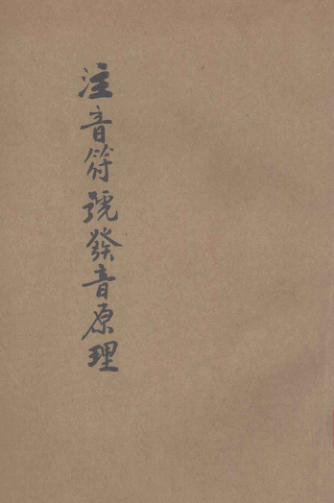 注音符號發音原理